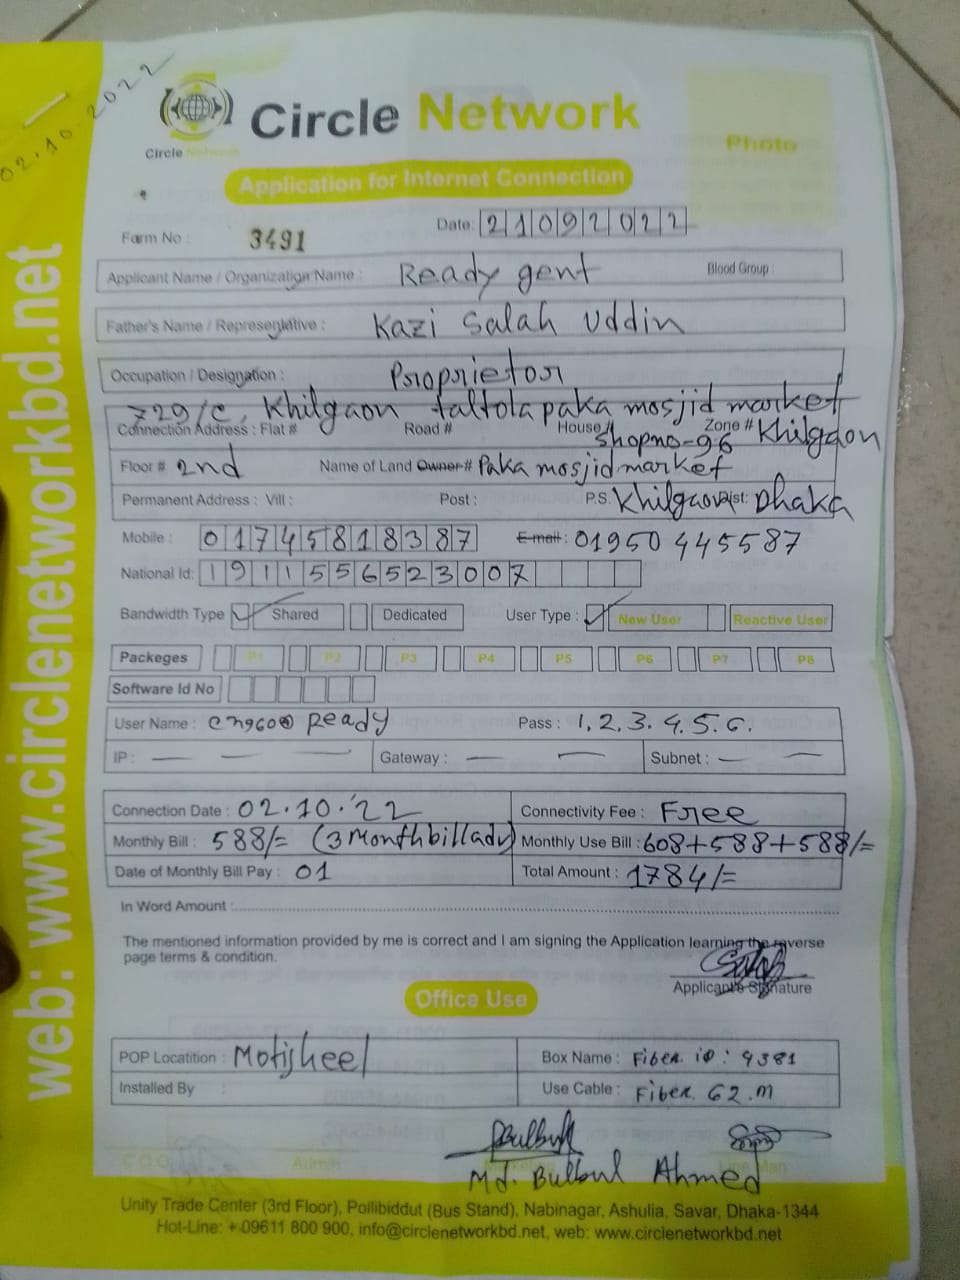 02.10.2022
Circle Network
Circle Network
Photo
Application for Internet Connection
Farm No : 3491
Date: 21092022
Applicant Name / Organization Name : Ready gent
Blood Group :
Father's Name / Represegtative : Kazi Salah Uddin
Occupation / Designation : Proprietor
729/C, Khilgaon taltola paka mosjid market
Connection Address : Flat # Road # House # Zone # Khilgaon
Shop no-96
Floor # 2nd Name of Land Owner # Paka mosjid market
Permanent Address : Vill : Post : P.S. Khilgaon Dist: Dhaka
Mobile : 01745818387 E-mail : 01950445587
National Id: 1911556523007
Bandwidth Type Shared Dedicated User Type : New User Reactive User
Packeges P1 P2 P3 P4 P5 P6 P7 P8
Software Id No
User Name : Ready Pass : 1.2.3.4.5.6.
IP : — — — Gateway : — — Subnet : — —
Connection Date : 02.10.'22 Connectivity Fee : Free
Monthly Bill : 588/= (3 Month bill adv) Monthly Use Bill : 608+588+588/=
Date of Monthly Bill Pay : 01 Total Amount : 1784/=
In Word Amount :
The mentioned information provided by me is correct and I am signing the Application learning the reverse
page terms & condition.
Salah
Applicant's Signature
Office Use
POP Locatition : Motijheel Box Name : Fiber iD : 9381
Installed By : Use Cable : Fiber 62.m
Bulbul
Md. Bulbul Ahmed
C.O.O Admin
Unity Trade Center (3rd Floor), Pollibiddut (Bus Stand), Nabinagar, Ashulia, Savar, Dhaka-1344
Hot-Line: + 09611 800 900, info@circlenetworkbd.net, web: www.circlenetworkbd.net
web: www.circlenetworkbd.net